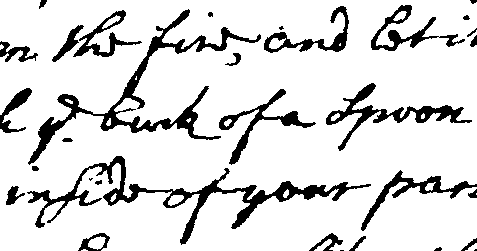 the fire, and let it
ye back of a Spoon
inside of your